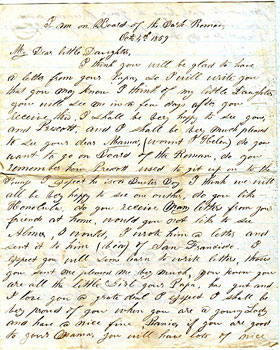 I am on Board of the Bark Roman
Oct 4th 1859
My Dear little Daughter,
I think you will be glad to have
a letter from your Papa, So I will write you
that you may know I think of my little Daughter
you will see me in a few days after you
receive this, I shall be very happy to see you,
and Prescott, and I shall be very much pleased
to see your dear Mama, (wount I Helen) do you
want to go on Board of the Roman, do you
remember him Prescott used to get up on to the
I expect is a Buster Boy I think we will
all be very happy to see on another, do you like
Honolulu, did you receive any letters from your
friends at home, would you not like to see
Alma, I would, I wrote him a letter and
sent it to him of San Francisco I
expect you will soon learn to write letters, those
you sent me pleased me very much, you know you
are all the little Girl your Papa, has got and
I love you a grate deal I expect I shall be
very proud of you when you are a young Lady
and have a nice fine Pianior if you are good
to your Mama, you will have lots of nice